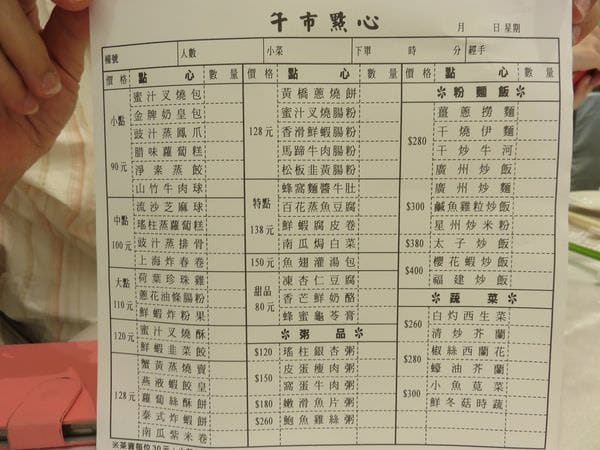 午市點心
月 日 星期
檯號 人數 小菜 下單 時 分 經手
價格 點心 數量
小點 90元
蜜汁叉燒包
金牌奶皇包
豉汁蒸鳳爪
腊味蘿蔔糕
淨素蒸餃
山竹牛肉球
中點 100元
流沙芝麻球
瑤柱蒸蘿蔔糕
豉汁蒸排骨
上海炸春卷
大點 110元
荷葉珍珠雞
蔥花油條腸粉
鮮蝦炸粉果
120元
蜜汁叉燒酥
鮮蝦韭菜餃
128元
蟹黃蒸燒賣
燕液蝦餃皇
蘿蔔絲酥餅
泰式炸蝦餅
南瓜紫米卷
價格 點心 數量
128元
黃橋蔥燒餅
蜜汁叉燒腸粉
香滑鮮蝦腸粉
馬蹄牛肉腸粉
松板韭黃腸粉
特點 138元
蜂窩麵醬牛肚
百花蒸魚豆腐
鮮蝦腐皮卷
南瓜焗白菜
150元 魚翅灌湯包
甜品 80元
凍杏仁豆腐
香芒鮮奶酪
蜂蜜龜苓膏
✲粥品✲
$120 瑤柱銀杏粥
$150
皮蛋瘦肉粥
窩蛋牛肉粥
$180 嫩滑魚片粥
$260 鮑魚雞絲粥
價格 點心 數量
✲粉麵飯✲
$280
薑蔥撈麵
干燒伊麵
干炒牛河
廣州炒飯
$300
廣州炒麵
鹹魚雞粒炒飯
星州炒米粉
$380 太子炒飯
$400
櫻花蝦炒飯
福建炒飯
✲蔬菜✲
$260
白灼西生菜
清炒芥蘭
$280
椒絲西蘭花
蠔油芥蘭
$300
小魚莧菜
鮮冬菇時蔬
※茶資每位30元